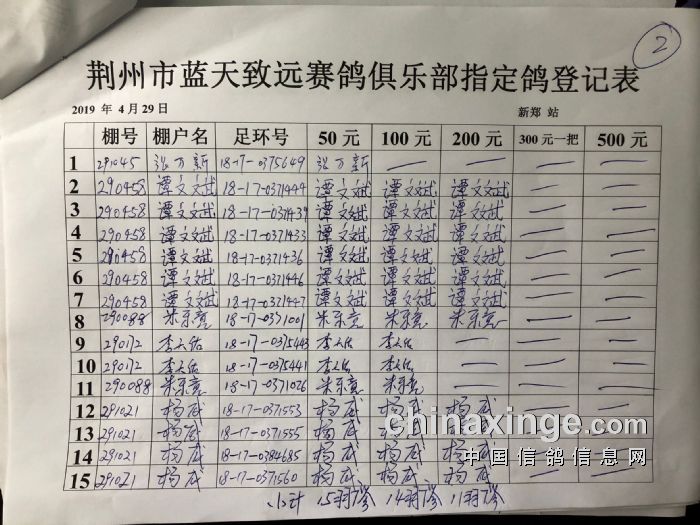 2
荆州市蓝天致远赛鸽俱乐部指定鸽登记表
2019 年 4 月 29 日 新郑 站
棚号 棚户名 足环号 50 元 100 元 200 元 300 元一把 500 元
1 291045 张万新 18-17-0375649 张万新 — — — —
2 290458 谭文斌 18-17-0371444 谭文斌 谭文斌 谭文斌 — —
3 290458 谭文斌 18-17-0371439 谭文斌 谭文斌 谭文斌 — —
4 290458 谭文斌 18-17-0371433 谭文斌 谭文斌 谭文斌 — —
5 290458 谭文斌 18-17-0371436 谭文斌 谭文斌 谭文斌 — —
6 290458 谭文斌 18-17-0371446 谭文斌 谭文斌 谭文斌 — —
7 290458 谭文斌 18-17-0371447 谭文斌 谭文斌 谭文斌 — —
8 290088 朱东亮 18-17-0371001 朱东亮 朱东亮 朱东亮 — —
9 290172 18-17-0375443 — — —
10 290172 18-17-0375441 — — —
11 290088 朱东亮 18-17-0371026 朱东亮 朱东亮 — — —
12 291021 杨威 18-17-0371553 杨威 杨威 杨威 — —
13 291021 杨威 18-17-0371555 杨威 杨威 杨威
14 291021 杨威 18-17-0384685 杨威 杨威 杨威
15 291021 杨威 18-17-0371560 杨威 杨威 杨威 — —
小计 15羽 14羽 11羽
chinaxinge.com
中国信鸽信息网